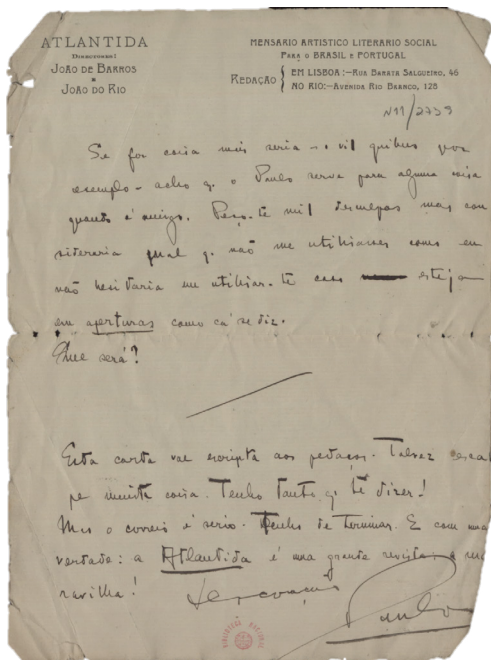 ATLANTIDA
Directores:
JOÃO DE BARROS
JOÃO DO RIO
MENSARIO ARTISTICO LITERARIO SOCIAL
PARA O BRASIL E PORTUGAL
REDAÇÃO { EM LISBOA:—RUA BARATA SALGUEIRO, 46
NO RIO:—AVENIDA RIO BRANCO, 128
N11/2739
Se for coisa mais seria - o vil quibus por
exemplo - acho q. o Paulo serve para alguma coisa
quando é amigo. Peço-te mil desculpas mas con
sideraria gual q. não me utilisasses como eu
não hesitaria em utilisar-te caso esteja
em aperturas como cá se diz.
Que será?
Esta carta vae escripta aos pedaços. Talvez esca
pe muita coisa. Tenho tanto q. te dizer!
Mas o correio é serio. Tenho de terminar. E com uma
verdade: a Atlantida é uma grande revista, a ma
ravilha!
Paulo
BIBLIOTECA NACIONAL